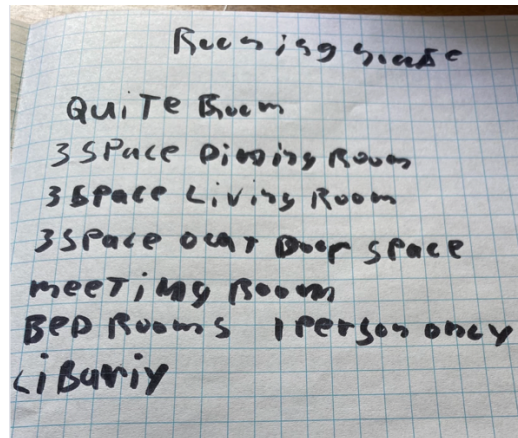 Rooming house
QUiTE Room
3 SPace Dining Room
3 Space Living Room
3 SPace out Door space
meeTing Room
BeD Rooms 1 Person oncy
LiBuriy